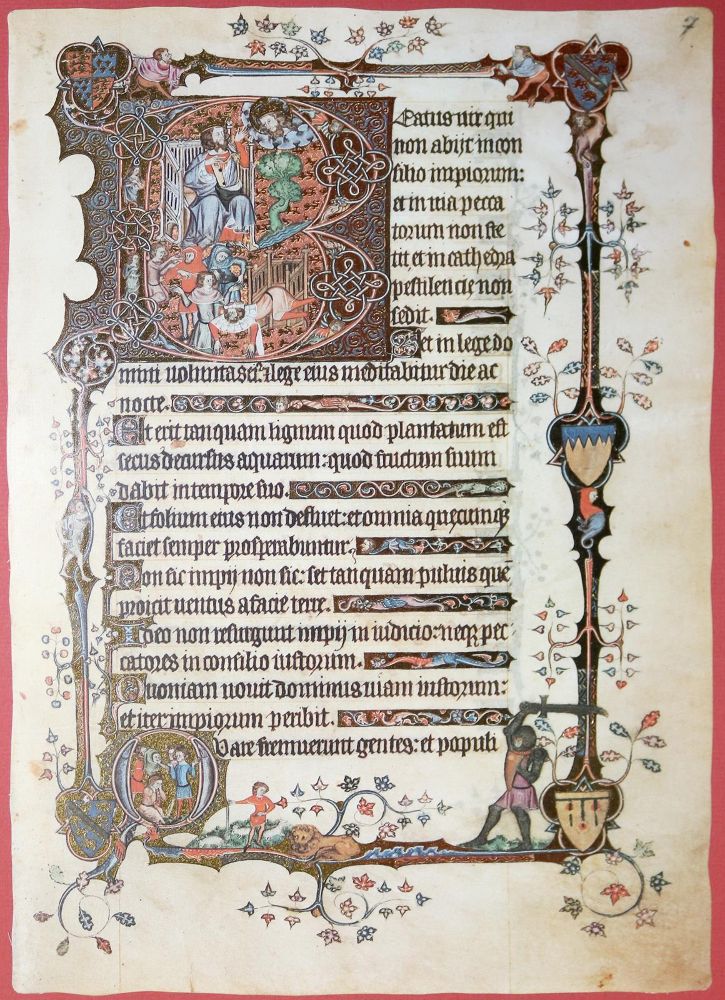 7
Beatus uir qui
non abijt in con
silio impiorum:
et in uia pecca
torum non ste
tit et in cathedra
pestilencie non
sedit.
Set in lege do
mini uoluntas lege eius meditabitur die ac
nocte.
Et erit tanquam lignum quod plantatum est
secus decursus aquarum: quod fructum suum
dabit in tempore suo.
Et folium eius non defluet: et omnia quecunqꝫ
faciet semper prosperabuntur.
Non sic impij non sic: set tanquam puluis quē
proicit uentus a facie terre.
Ideo non resurgunt impij in iudicio: neqꝫ pec
catores in consilio iustorum.
Quoniam nouit dominus uiam iustorum:
et iter impiorum peribit.
Quare fremuerunt gentes: et populi